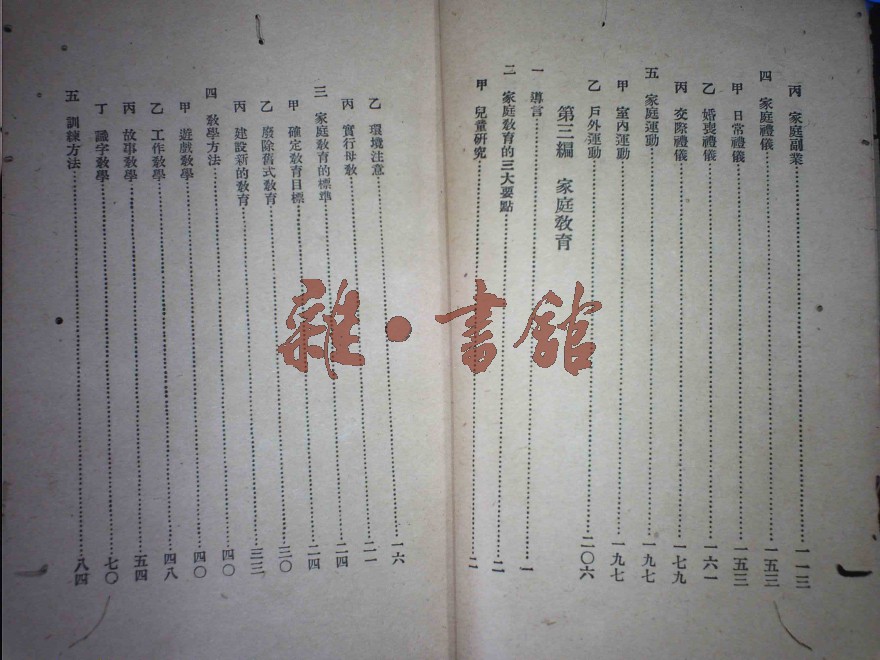 丙 家庭副業……一一三
四 家庭禮儀……一五三
甲 日常禮儀……一五三
乙 婚喪禮儀……一六一
丙 交際禮儀……一七九
五 家庭運動……一九七
甲 室內運動……一九七
乙 戶外運動……二〇六
第三編 家庭教育
一 導言……一
二 家庭教育的三大要點……二
甲 兒童研究……二
乙 環境注意……一六
丙 實行母教……二一
三 家庭教育的標準……二四
甲 確定教育目標……二四
乙 廢除舊式教育……三〇
丙 建設新的教育……三三
四 教學方法……四〇
甲 遊戲教學……四〇
乙 工作教學……四八
丙 故事教學……五四
丁 識字教學……七〇
五 訓練方法……八四
雜·書館